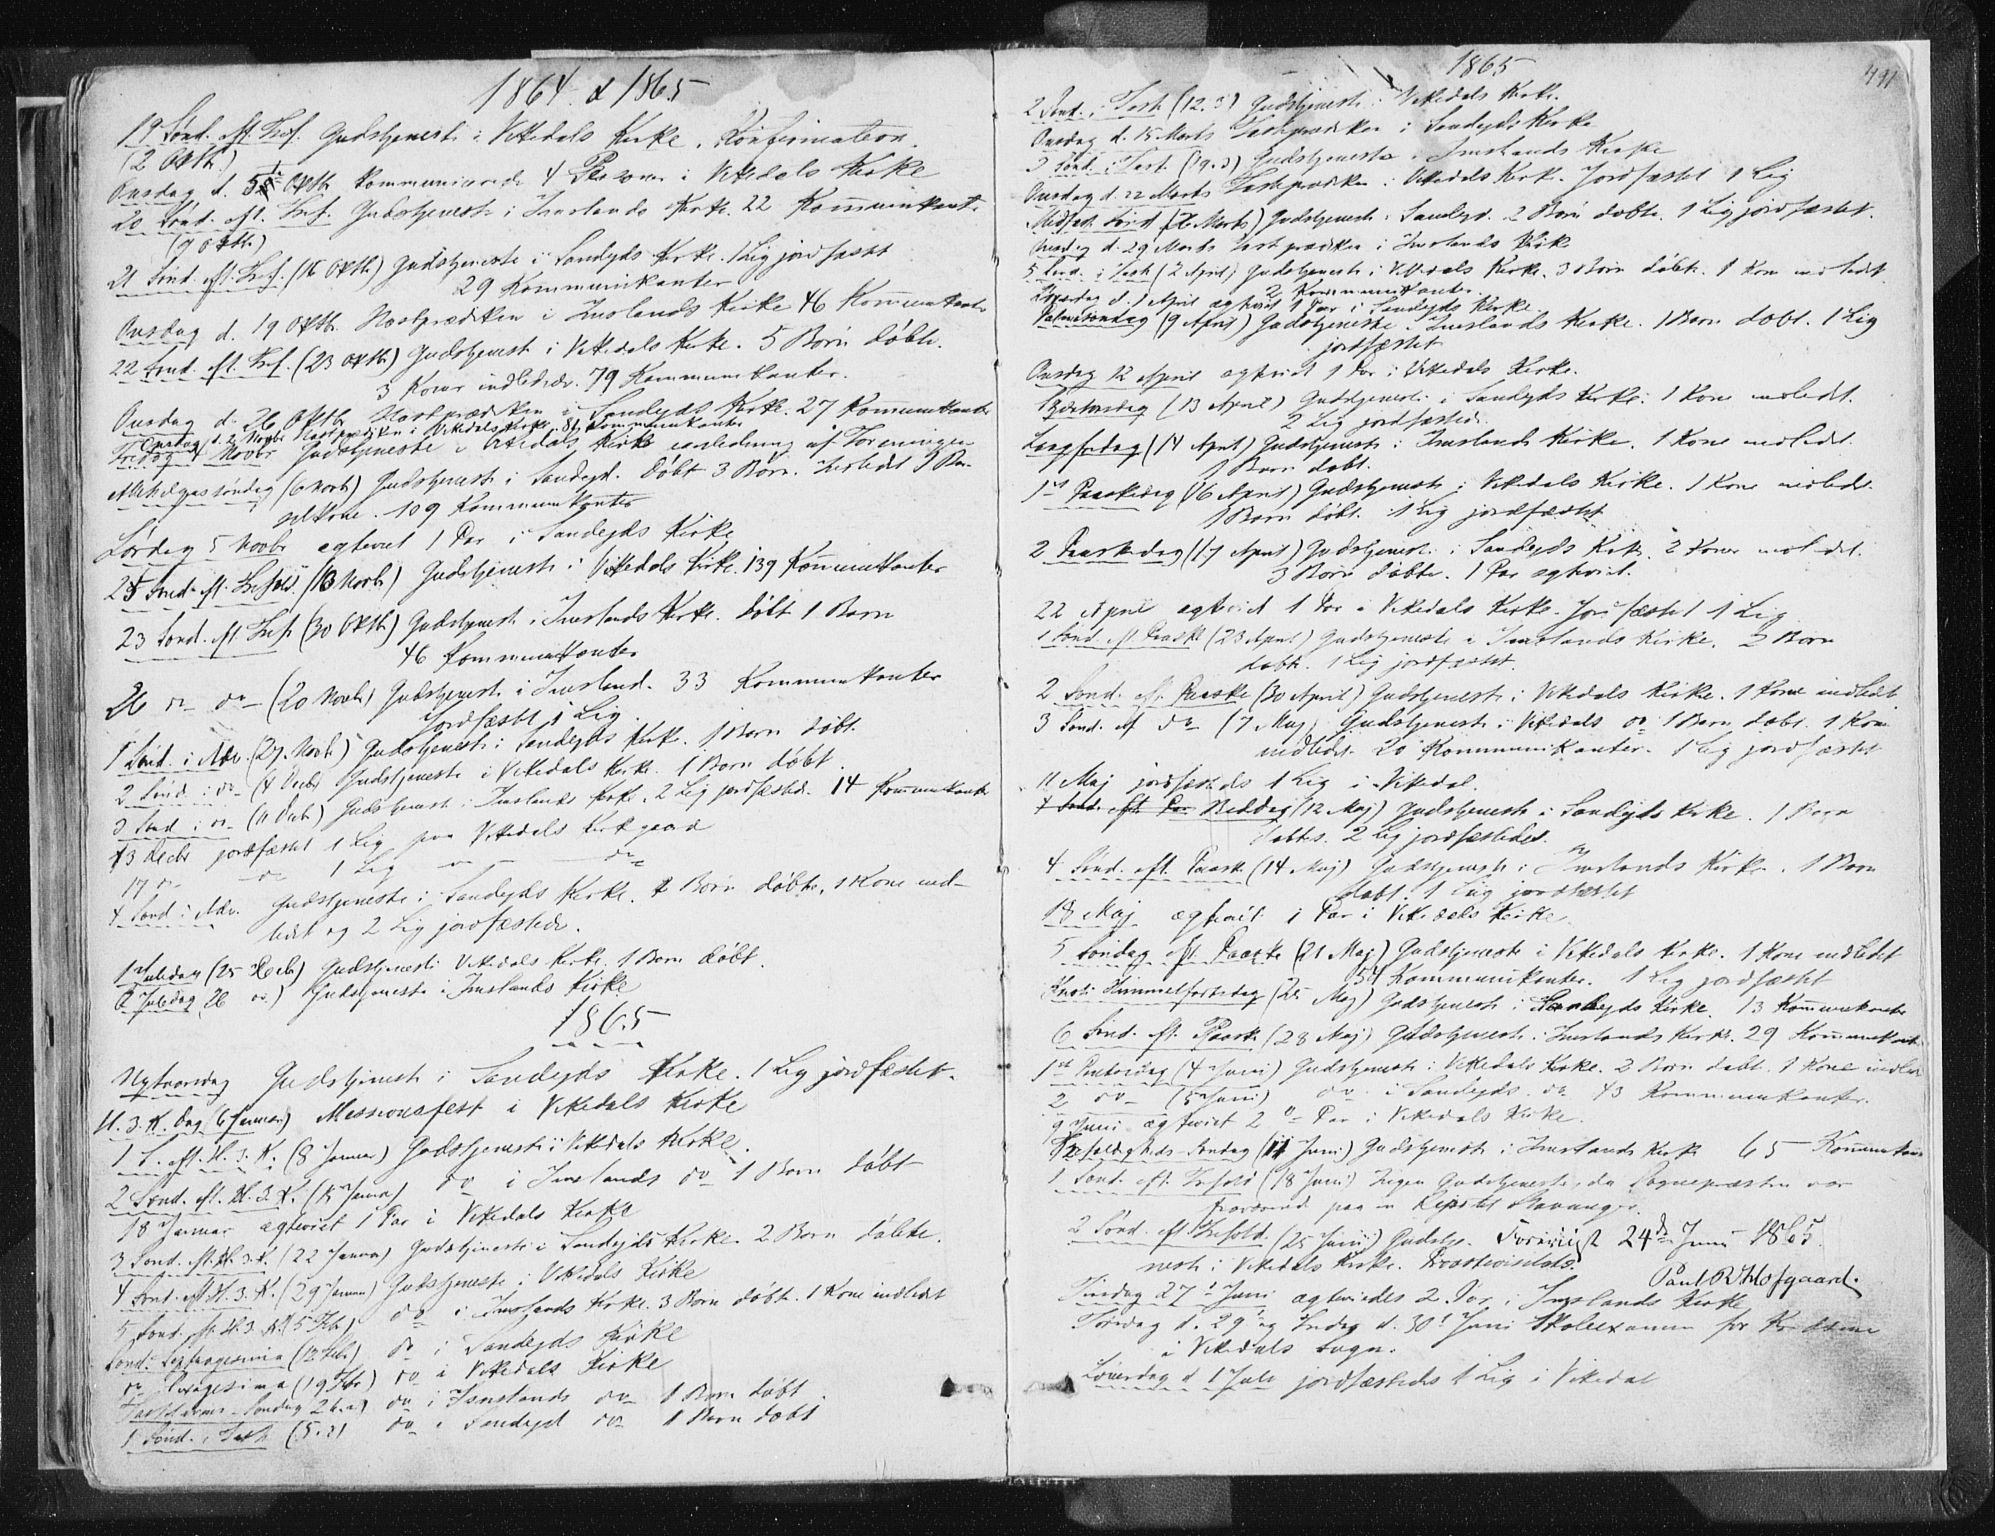 1864 & 1865
19 Sønd. eft. Tref. Gudstjeneste i Vikedals Kirke. Konfirmation.
(2 Oktbr.)
Onsdag d. 5te Oktbr. kommunicerede 4 Personer i Vikedals Kirke
20 Sønd. eft. Tref. Gudstjeneste i Imslands Kirke. 22 Kommunikanter
(9 Oktbr.)
21 Sønd. eft. Tref. (16 Oktbr) Gudstjeneste i Sandejds Kirke. 1 Lig jordfæstet
29 Kommunikanter
Onsdag d. 19 Oktbr. Høstprædiken i Imslands Kirke 46 Kommunikanter
22 Sønd. eft. Tref. (23 Oktbr) Gudstjenest i Vikedals Kirke. 5 Børn døbte.
3 Koner indledede. 79 Kommunikanter.
Onsdag d. 26 Oktbr Høstprædiken i Sandejds Kirke. 27 Kommunikanter
Onsdag d. 2 Novbr Høstprædiken i Vikedals Kirke. 81 Kommunikanter
Fredag 4 Novbr Gudstjeneste i Vikedals Kirke i Anledning af Foreningen
Allehelgenssøndag (6 Novb) Gudstjeneste i Sandejd. Døbt 3 Børn. Indledet 3 Bar-
selkone. 109 Kommunikanter
Lørdag 5 Novbr ægteviet 1 Par i Sandejds Kirke
25 Sønd. eft. Trefold. (13 Novbr) Gudstjeneste i Vikedals Kirke. 139 Kommunikanter
23 Sønd. eft. Tref. (30 Oktbr) Gudstjeneste i Imslands Kirke. Døbt 1 Barn
46 Kommunikanter
26 do do (20 Novbr) Gudstjeneste i Imsland. 33 Kommunikanter
Jordfæstet 1 Lig.
1 Sønd. i Adv. (27. Novbr) Gudstjeneste i Sandejds Kirke. 1 Barn døbt.
2 Sønd. i do (4 Decbr) Gudstjeneste i Vikedals Kirke. 1 Barn døbt.
3 Sønd. i do (11 Decb) Gudstjeneste i Imslands Kirke. 2 Lig jordfæstede. 14 Kommunikanter
13 Decbr jordfæstet 1 Lig paa Vikedals Kirkegaard
17 do do 1 Lig do do
4 Sønd. i Adv. Gudstjeneste i Sandejds Kirke. 2 Børn døbte, 1 Kone ind-
ledet og 2 Lig jordfæstede.
1 Juledag (25 Decb) Gudstjeneste Vikedals Kirke. 1 Barn døbt.
2 Juledag (26 do) Gudstjeneste i Imslands Kirke
1865
Nytaarsdag Gudstjeneste i Sandejds Kirke. 1 Lig jordfæstet.
H. 3. K. Dag (6 Januar) Missionsfest i Vikedals Kirke
1 S. eft. H. 3. K. (8 Januar) Gudstjeneste i Vikedals Kirke.
2 Sønd. eft. H. 3. K. (15 Januar) do i Imslands do 1 Barn døbt
18 Januar ægteviet 1 Par i Vikedals Kirke
3 Sønd. eft. H. 3. K. (22 Januar) Gudstjeneste i Sandejds Kirke. 2 Børn døbte.
4 Sønd. eft. H. 3. K. (29 Januar) Gudstjeneste i Vikedals Kirke
5 Sønd. eft. H. 3. K. (5 Febr) do i Imslands Kirke. 3 Børn døbte. 1 Kone indledet
Sønd. Septuagesima (12 Febr) do i Sandejds Kirke
do Sexagesima (19 Febr) do i Vikedals Kirke
Fastelavns-Søndag 26.2) do i Imslands do 1 Barn døbt.
1 Sønd. i Faste (5.3) do i Sandejd do 1 Barn døbt
1865
491
2 Sønd. i Faste (12.3) Gudstjeneste i Vikedals Kirke.
Onsdag d. 15 Marts Fasteprædiken i Sandejds Kirke
3 Sønd. i Fast. (19.3) Gudstjeneste i Imslands Kirke
Onsdag d. 22 Marts Fasteprædiken i Vikedals Kirke. Jordfæstet 1 Lig
Midfaste Sønd. (26 Marts) Gudstjeneste i Sandejd. 2 Børn døbte. 1 Lig jordfæstet.
Onsdag d. 29 Marts Fasteprædiken i Imslands Kirke
5 Sønd. i Faste (2 April) Gudstjeneste i Vikedals Kirke. 3 Børn døbte. 1 Kone indledet.
2 Kommunikanter.
April ægteviet 1 Par i Sandejds Kirke.
Palmesøndag (9 April) Gudstjeneste i Imslands Kirke. 1 Barn døbt. 1 Lig
jordfæstet
Onsdag 12 April ægteviet 1 Par i Vikedals Kirke.
Skjærtorsdag (13 April) Gudstjeneste i Sandejds Kirke. 1 Kone indledet.
2 Lig jordfæstede.
Langfredag (14 April) Gudstjeneste i Imslands Kirke. 1 Kone indledet.
1 Barn døbt.
1ste Paaskedag (16 April) Gudstjeneste i Vikedals Kirke. 1 Kone indledet.
1 Barn døbt. 1 Lig jordfæstet
2 Paaskedag (17 April) Gudstjeneste i Sandejds Kirke. 2 Koner indledet.
3 Børn døbte. 1 Par ægteviet.
22 April ægteviet 1 Par i Vikedals Kirke. Jordfæstet 1 Lig
1 Sønd. eft. Paaske (23 April) Gudstjeneste i Imslands Kirke. 2 Børn
døbte. 1 Lig jordfæstet.
2 Sønd. eft. Paaske (30 April) Gudstjeneste i Vikedals Kirke. 1 Kone indledet
3 Sønd. eft do (7 Maj) Gudstjeneste i Vikedals do 1 Barn døbt. 1 Kone
indledet. 20 Kommunikanter. 1 Lig jordfæstet
11 Maj jordfæstedes 1 Lig i Vikedal.
4 Sønd. eft. Paa Beddag (12 Maj) Gudstjeneste i Sandejds Kirke. 1 Barn
døbtes. 2 Lig jordfæstedes.
4 Sønd. eft. Paaske (14 Maj) Gudstjeneste i Imslands Kirke. 1 Barn
døbt. 1 Lig jordfæstet
18 Maj ægteviet 1 Par i Vikedals Kirke
5 Søndag eft. Paaske (21 Maj) Gudstjeneste i Vikedals Kirke. 1 Kone indledet
54 Kommunikanter. 1 Lig jordfæstet
Kristi Himmelfartsdag (25 Maj) Gudstjeneste i Sandejds Kirke. 13 Kommunikanter
6 Sønd. eft. Paaske (28 Maj) Gudstjeneste i Imslands Kirke. 29 Kommunikanter
1ste Pintsedag (4 Juni) Gudstjeneste i Vikedals Kirke. 2 Børn døbt. 1 Kone indledet
2 do (5 Juni) do i Sandejds do 43 Kommunikanter.
9 Juni ægteviet 2 Par i Vikedals Kirke.
Trefoldigheds-Søndag (11 Juni) Gudstjeneste i Imslands Kirke 65 Kommunikanter
1 Sønd. eft. Trefold (18 Juni) Ingen Gudstjeneste, da Sognepræsten var
fraværende paa en Rejse til Stavanger.
2 Sønd. eft Trefold. (25 Juni) Gudstje-
neste i Vikedals Kirke. Provstevisitats.
Foreviist 24de Juni 1865.
Paul R Hofgaard.
Tirsdag 27de Juni ægteviedes 2 Par i Imslands Kirke
Torsdag d. 29 og Fredag d. 30te Juni Skoleexamen for Kredsene
i Vikedals Sogn.
Løverdag d 1 Juli jordfæstedes 1 Lig i Vikedal